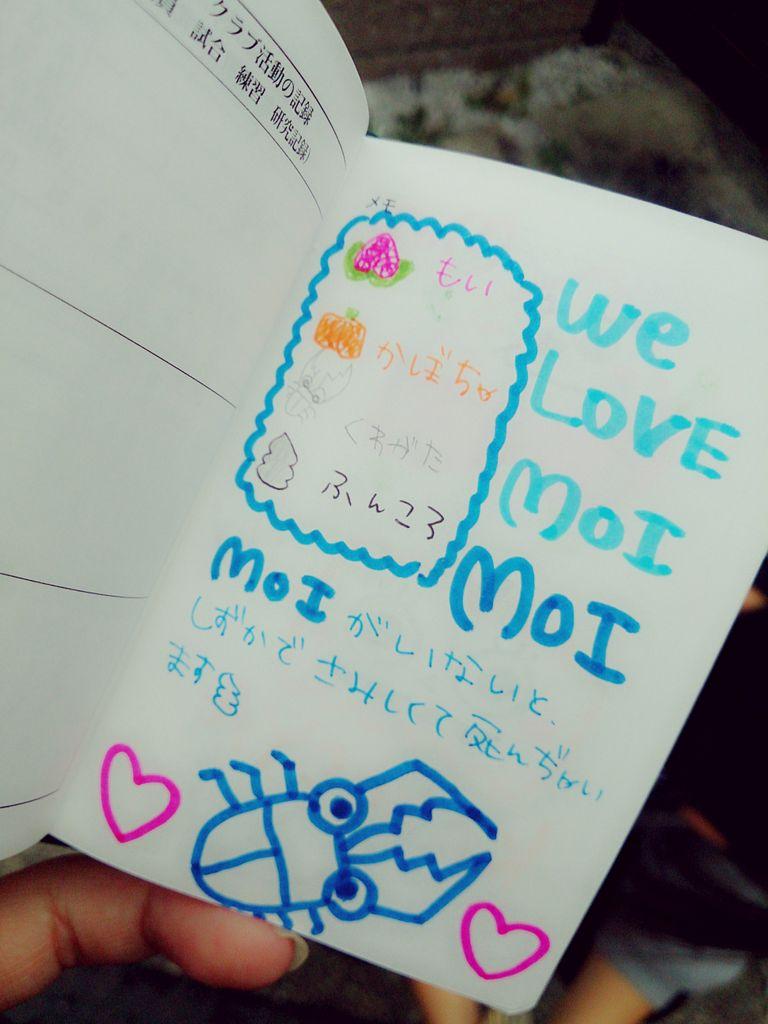 クラブ活動の記録
試合 練習 研究記録)
メモ
もい
かぼちゃ
くわがた
ふんころ
We
LOVE
MOI
MOI
MOI がいないと、
しずかで さみしくて 死んぢゃい
ます